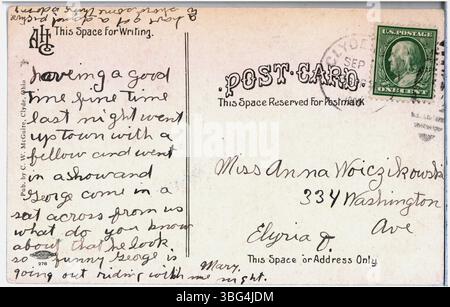 AHC
This Space for Writing.
having a good
time fine time
last night went
up town with a
fellow and went
in a show and
George come in a
seat across from us
what do you know
about that he look
so funny George is
going out riding with me night.
Mary.
Pub. by C. W. McGuire, Clyde, Ohio
276
POST-CARD
This Space Reserved for Postmark
CLYDE
SEP
U.S. POSTAGE
ONE CENT
Miss Anna Woiczikowski
334 Washington
Ave
Elyria O.
This Space for Address Only
alamy
Image ID: 3BG4JDM
www.alamy.com